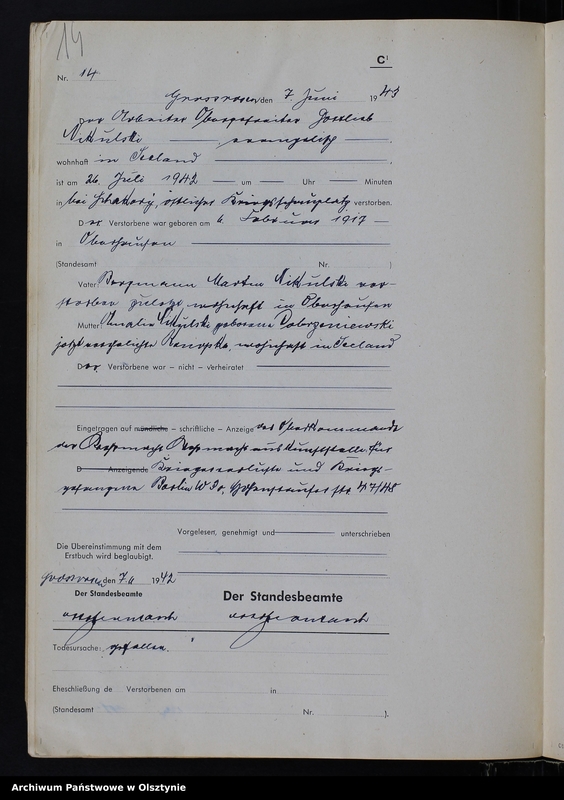 14
C¹
Nr. 14
den 7. Juni 1943
Der Arbeiter Obergefreiter Gottlieb
Nikulski evangelisch
wohnhaft in Seeland
ist am 26. Juli 1942 um Uhr Minuten
in bei östlicher Kriegsschauplatz verstorben.
Der Verstorbene war geboren am 6. Februar 1917
in Oberhausen
(Standesamt Nr. )
Vater: Bergmann Martin Nikulski ver-
storben zuletzt wohnhaft in Oberhausen
Mutter: Amalie Nikulski geborene
jetzt verehelichte wohnhaft in Seeland
Der Verstorbene war – nicht – verheiratet
Eingetragen auf mündliche – schriftliche – Anzeige des Oberkommandos
der Wehrmacht Wehrmachtauskunftstelle für
D Anzeigende Kriegerverluste und Kriegs-
gefangene Berlin W 30, Hohenstaufenstr. 47/48
Vorgelesen, genehmigt und unterschrieben
Die Übereinstimmung mit dem
Erstbuch wird beglaubigt.
den 7. 6 1942
Der Standesbeamte
Der Standesbeamte
Todesursache: gefallen.
Eheschließung de Verstorbenen am in
(Standesamt Nr. ).
Archiwum Państwowe w Olsztynie